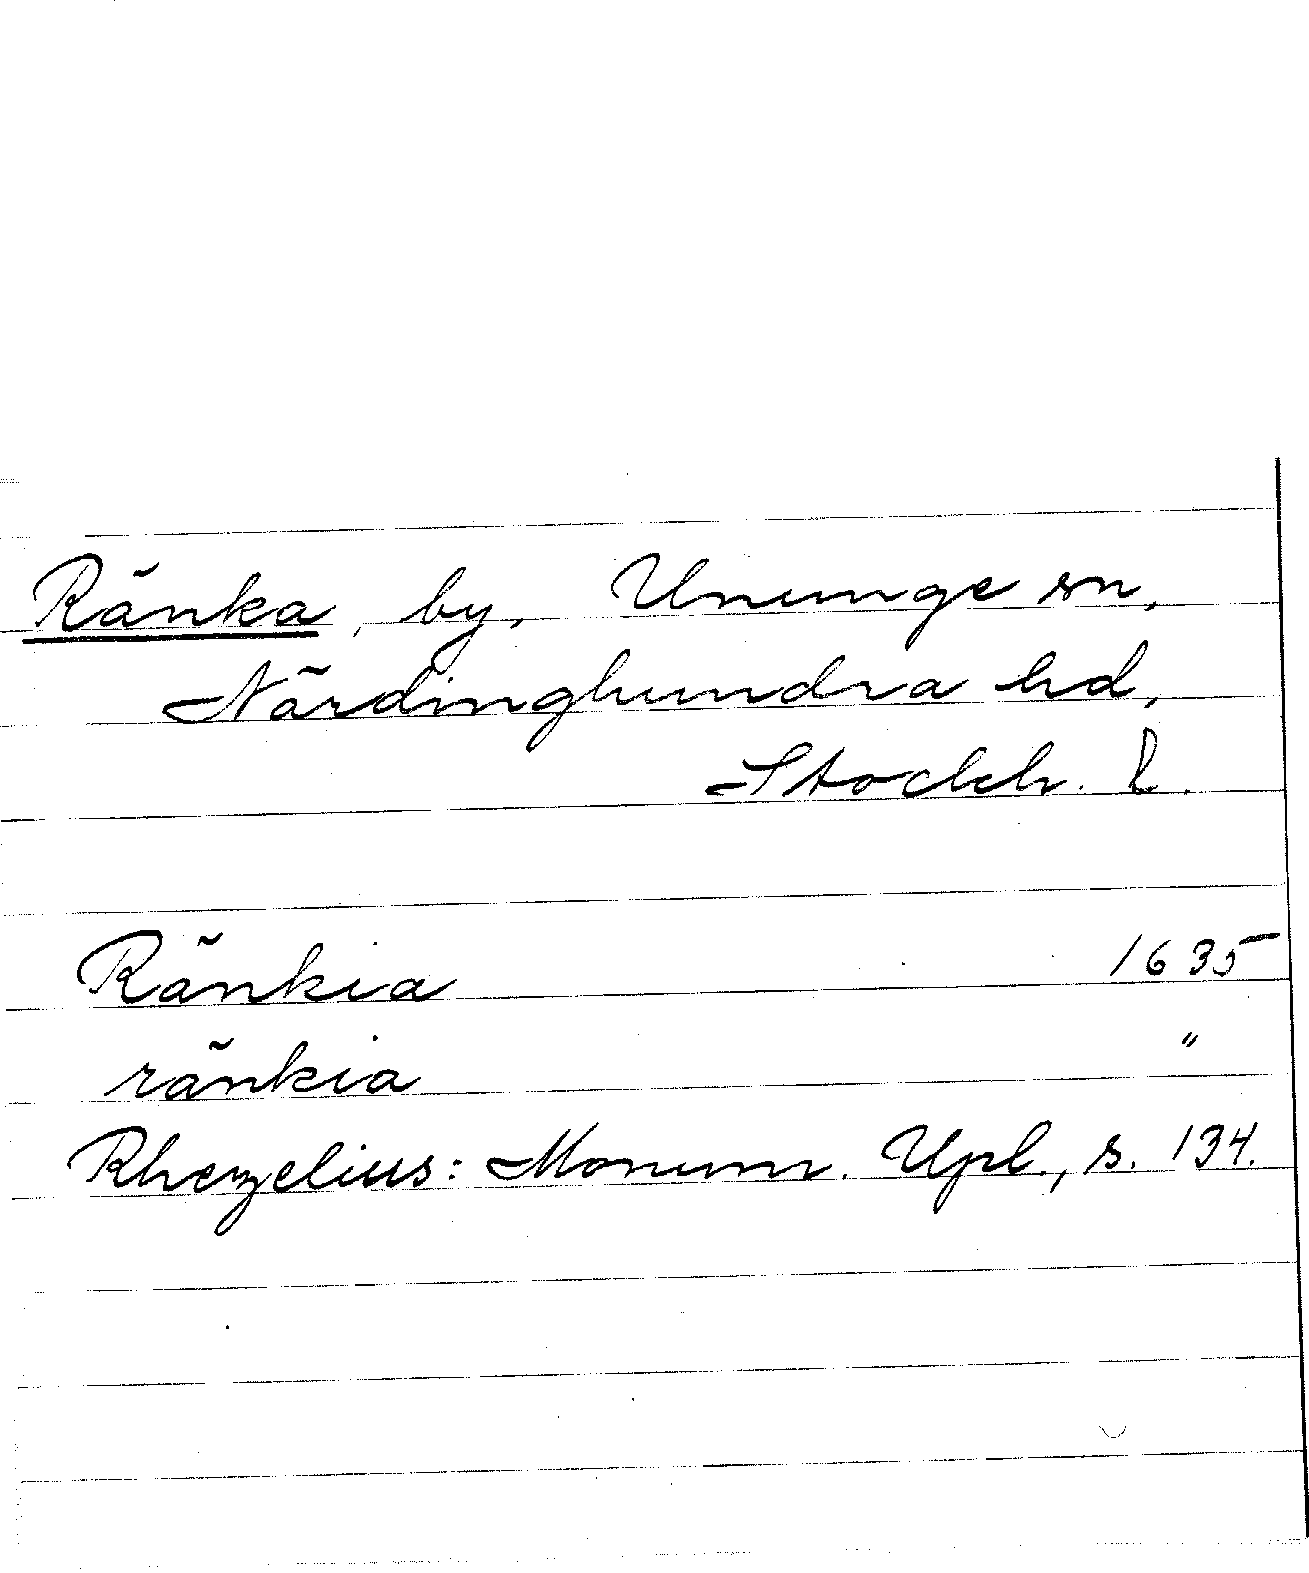 Ränka, by, Ununge sn,
Närdinghundra hd,
Stockh. l.
Ränkia 1635
ränkia "
Rhezelius: Monum. Upl., s. 134.